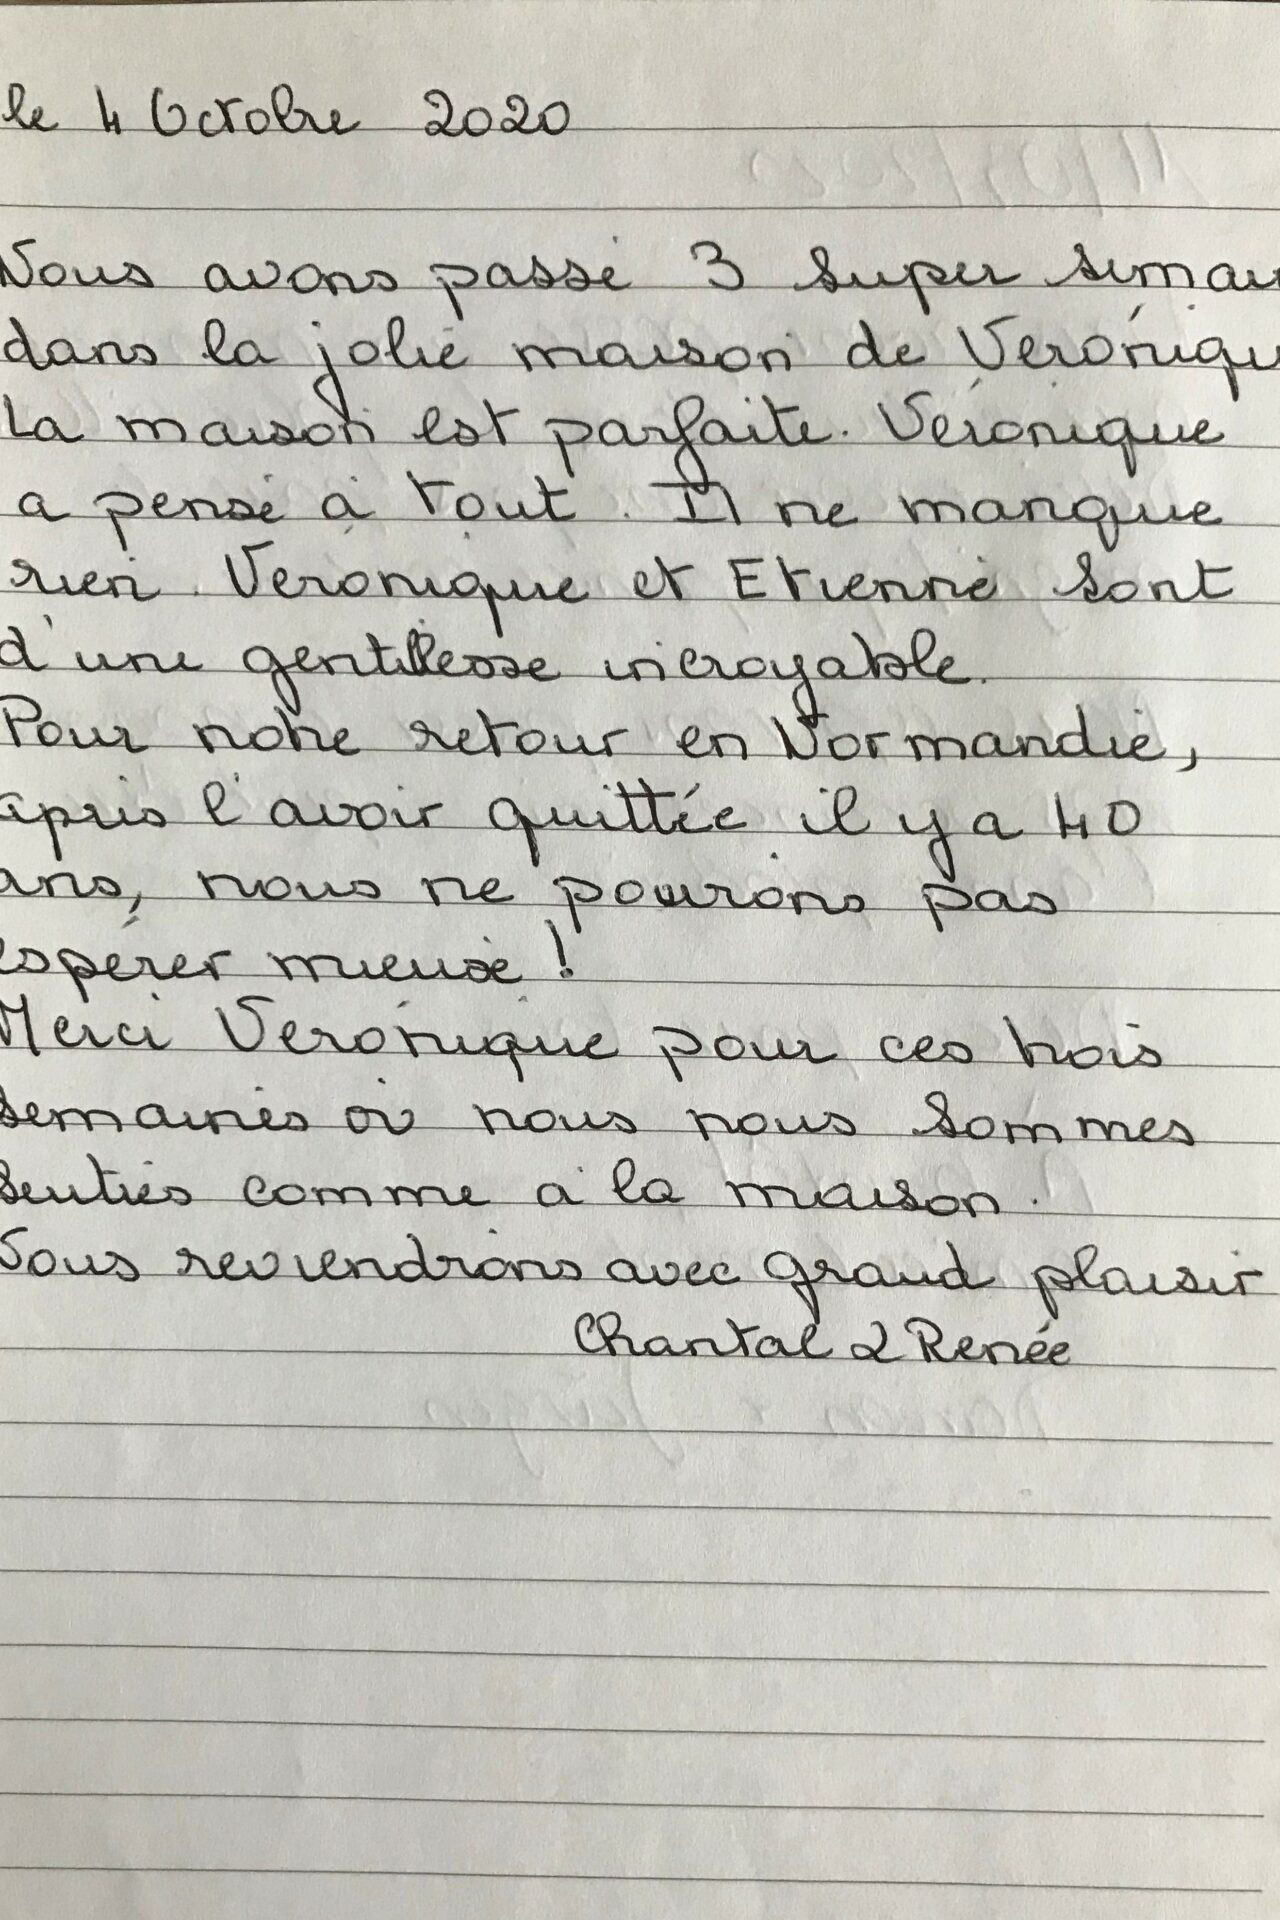 le 4 Octobre 2020
Nous avons passé 3 super semai
dans la jolie maison de Véroniqu
La maison est parfaite. Véronique
a pensé à tout. Il ne manque
rien. Véronique et Etienne sont
d'une gentillesse incroyable.
Pour notre retour en Normandie,
après l'avoir quittée il y a 40
ans, nous ne pourons pas
espérer mieux !
Merci Véronique pour ces trois
semaines où nous nous sommes
senties comme à la maison.
Nous reviendrons avec grand plaisir
Chantal & Renée